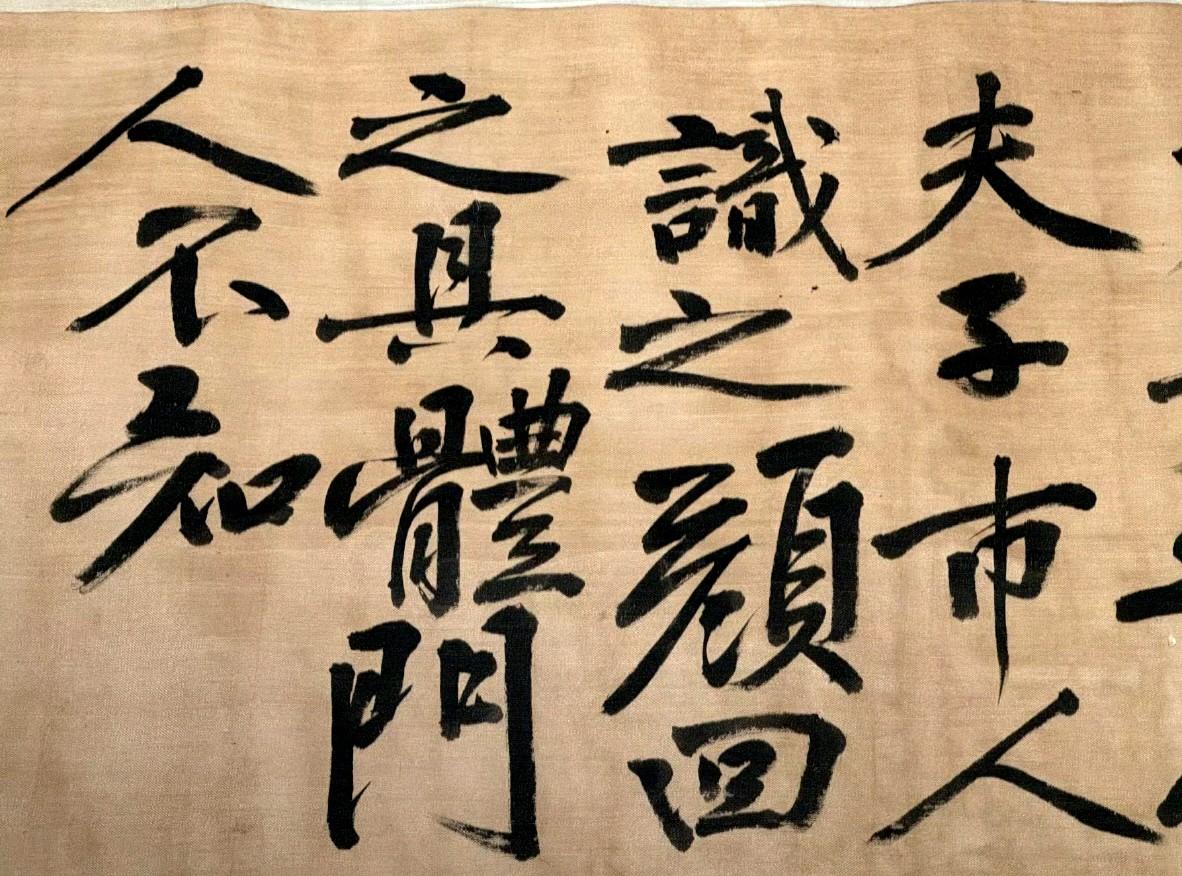 夫子市人
識之顔回
之具體門
人不知